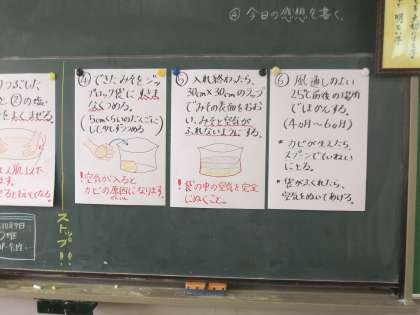 ④ 今日の感想を書く。
④ できたみそをジッ
プロック袋にすきま
なくつめる。
(5cmくらいのだんごに
して少しずつつめる)
!空気が入ると
カビの原因になります。
⑤ 入れ終わったら、
30cm×30cmのラップ
でみその表面をおお
い、みそと空気が
ふれないようにする。
!袋の中の空気を完全
にぬくこと。
⑥ 風通しのよい
25℃前後の場所
でほかんする。
(4ヵ月〜6ヵ月)
* カビが生えたら、
スプーンでていねい
にとる。
* 袋がふくれたら、
空気をぬいてあげる。
ストップ!!